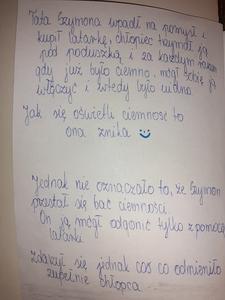 Tata Szymona wpadł na pomysł i
kupił latarkę, chłopiec trzymał ją
pod poduszką i za każdym razem
gdy już było ciemno, mógł sobie ją
włączyć i wtedy było widno
Jak się oświetli ciemność to
ona znika
Jednak nie oznaczało to, że Szymon
przestał się bać ciemności.
On ją mógł odgonić tylko z pomocą
latarki
Zdarzył się jednak coś co odmieniło
zupełnie chłopca...